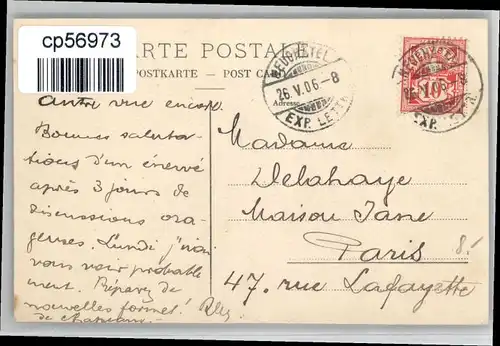 cp56973
CARTE POSTALE
POSTKARTE - POST CAR
Adresse
NEUCHATEL
26.V.06-8
EXP. LETTR.
NEUCHATEL
26.V.06-8
EXP. LETTR.
10
Autre vue encore.
Bonnes saluta-
tions d'un énervé
après 3 jours de
discussions ora-
geuses. Lundi j'irai
vous voir probable
ment. Préparez de
nouvelles formes!
de chapeaux
Madame
Delahaye
Maison Jane
Paris 8.
47. rue Lafayette